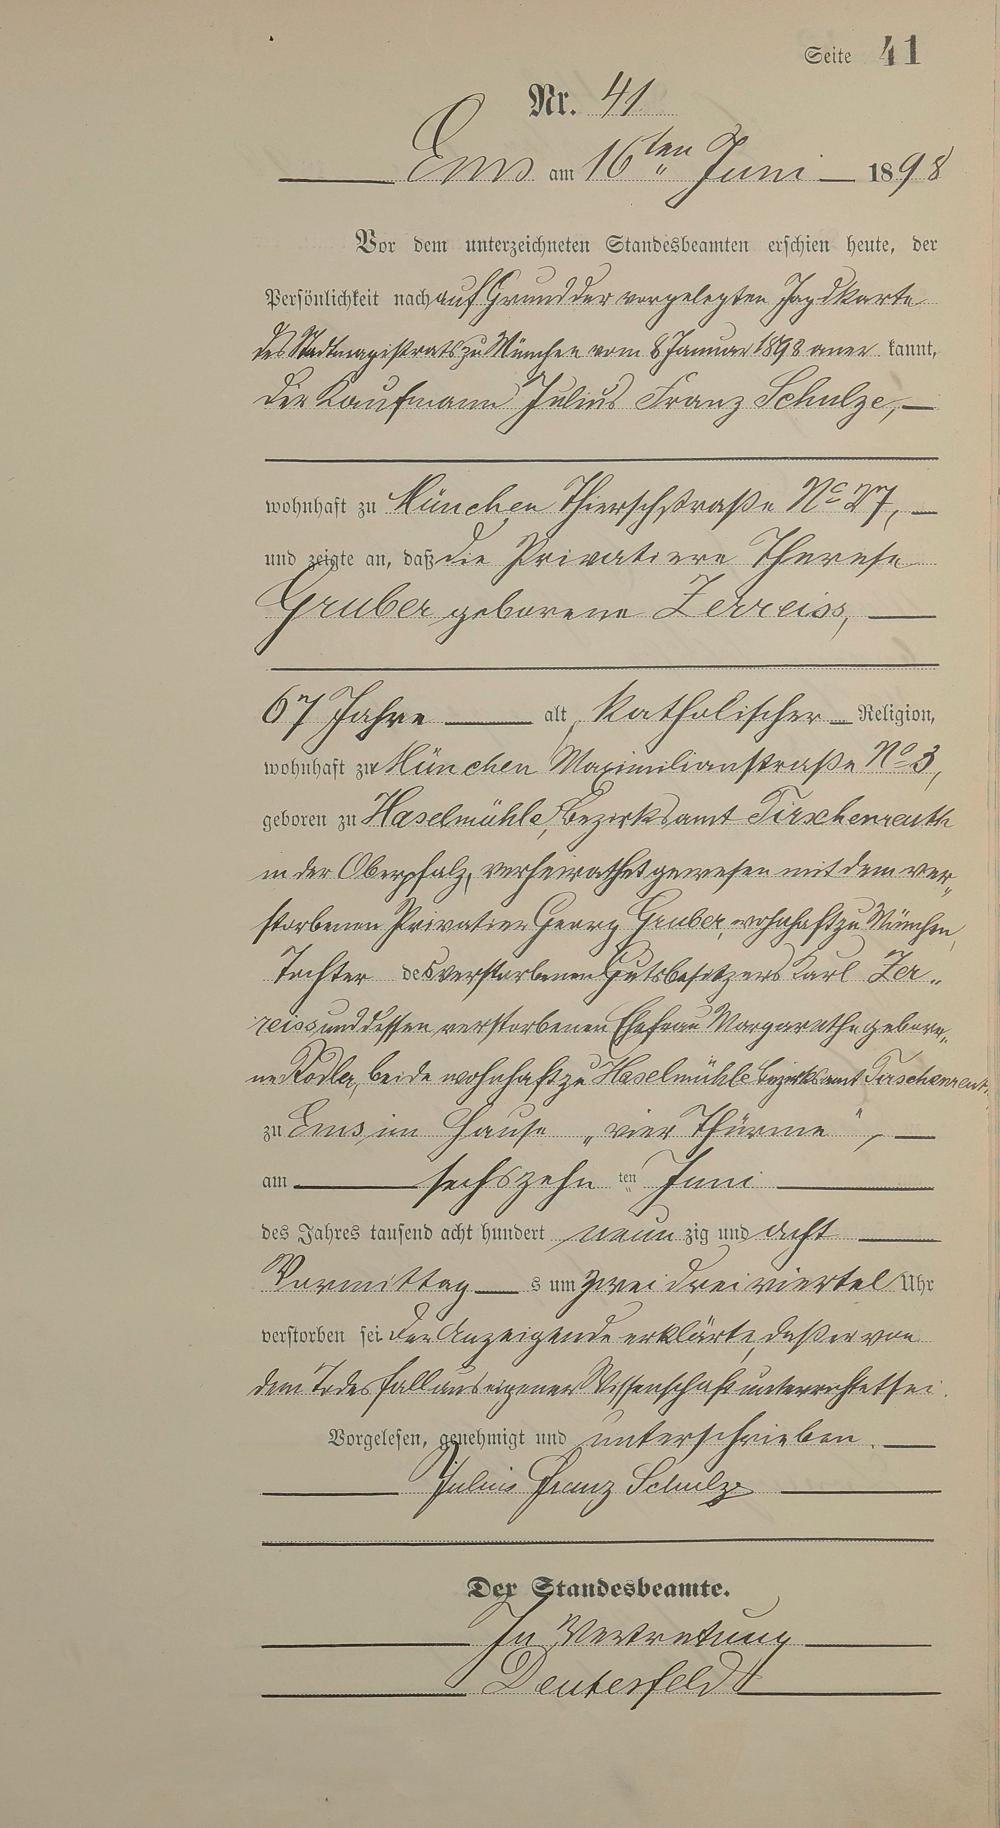 Seite 41
Nr. 41
Ems am 16ten Juni 1898
Vor dem unterzeichneten Standesbeamten erschien heute, der
Persönlichkeit nach auf Grund der vorgelegten Jagdkarte
des Stadtmagistrats zu München vom 8 Januar 1898 aner kannt,
der Kaufmann Julius Franz Schulze,
wohnhaft zu München Thierschstraße No 27,
und zeigte an, daß die Privatiere Therese
Gruber geborene Zerreiss,
67 Jahre alt, katholischer Religion,
wohnhaft zu München Maximilianstraße No 3,
geboren zu Haselmühle, Bezirksamt Tirschenreuth
in der Oberpfalz, verheirathet gewesen mit dem ver„
storbenen Privatier Georg Gruber, wohnhaft zu München,
Tochter des verstorbenen Gutsbesitzers Karl Zer„
reiss und dessen verstorbenen Ehefrau Margarethe gebore„
ne Rödler, beide wohnhaft zu Haselmühle Bezirksamt Tirschenreuth
zu Ems, im Hause „vier Thürme“,
am sechszehn ten Juni
des Jahres tausend acht hundert neun zig und acht
Vormittag s um zwei dreiviertel Uhr
verstorben sei. Der Anzeigende erklärte, daß er von
dem Todesfall aus eigener Wissenschaft unterrichtet sei.
Vorgelesen, genehmigt und unterschrieben.
Julius Franz Schulze
Der Standesbeamte.
In Vertretung
Deutesfeld